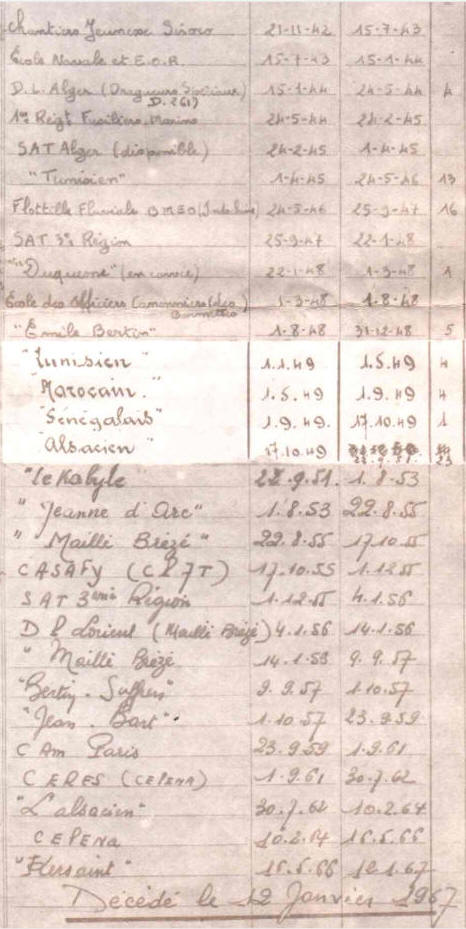 Chantiers Jeunesse Siroco 21-11-42 15-7-43
École Navale et E.O.R. 15-7-43 15-1-44
D.L. Alger (Dragueurs Spéciaux) 15-1-44 24-5-44 4
D. 261)
1er Régt Fusiliers Marins 24-5-44 24-2-45
SAT Alger (disponible) 24-2-45 1-4-45
"Tunisien" 1-4-45 24-5-46 13
Flottille Fluviale (Indochine) 24-5-46 25-9-47 16
SAT 3e Région 25-9-47 22-1-48
"Duquesne" (en corvée) 22-1-48 1-3-48 1
École des Officiers Canonniers 1-3-48 1-8-48
"Émile Bertin" 1-8-48 31-12-48 5
"Tunisien" 1.1.49 1.5.49 4
"Marocain." 1.5.49 1.9.49 4
"Sénégalais" 1.9.49. 17.10.49 1
"Alsacien" 17.10.49 23
"Le Kabyle 22.9.51. 1.8.53
"Jeanne d'Arc" 1.8.53 22.8.55
"Maillé Brézé" 22.8.55 17.10.55
CASAFY (CLJT) 17.10.55 1.12.55
SAT 3ème Région 1.12.55 4.1.56
D L Lorient (Maillé Brézé) 4.1.56 14.1.56
"Maillé Brézé 14.1.56 9.9.57
"Suffren" 9.9.57 1.10.57
"Jean. Bart". 1.10.57 23.9.59
C Am Paris 23.9.59 1.9.61
CERES (CEPENA) 1.9.61 30.7.62
"L'alsacien" 30.7.62 10.2.64
CEPENA 10.2.64 16.5.66
"Kersaint" 16.5.66 12.1.67
Décédé le 12 Janvier 1967